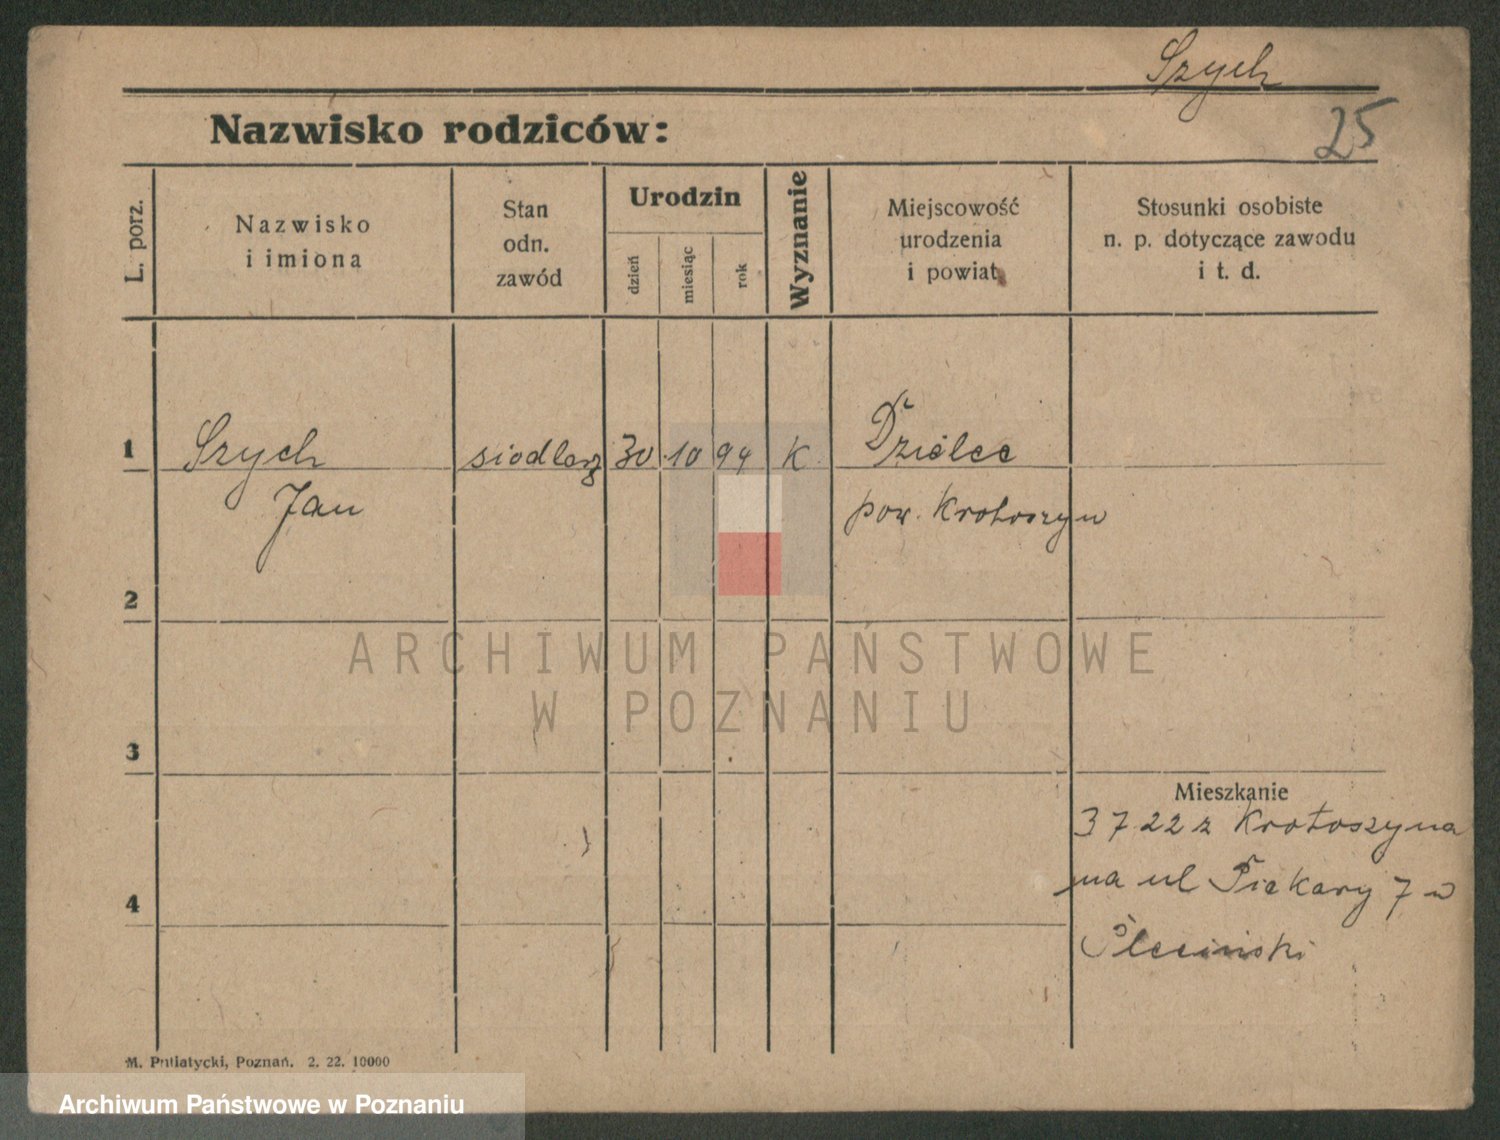 Szych
Nazwisko rodziców:
25
L. porz.
Nazwisko
i imiona
Stan
odn.
zawód
Urodzin
dzień
miesiąc
rok
Wyznanie
Miejscowość
urodzenia
i powiat
Stosunki osobiste
n. p. dotyczące zawodu
i t. d.
1
Szych
siodlarz
30
10
94
K
Dzielce
Jan
pow. Krotoszyn
2
ARCHIWUM PAŃSTWOWE
W POZNANIU
3
Mieszkanie
3 7 22 z Krotoszyna
na ul Piekary 7 u
4
M. Putiatycki, Poznań. 2. 22. 10000
Archiwum Państwowe w Poznaniu